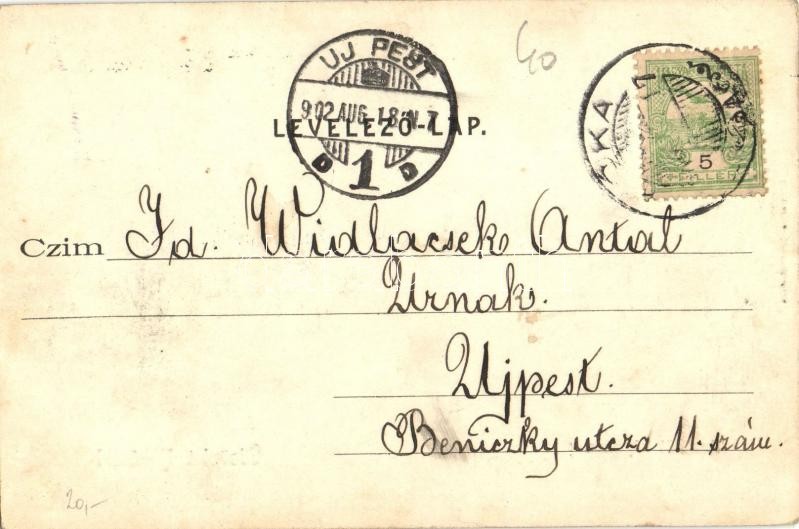 40
UJ PEST
902 AUG. 18. N. 7
D 1 D
LEVELEZŐ-LAP.
5
FILLÉR
Czim Id. Widlacsek Antal
Urnak.
Ujpest.
Beniczky utcza 11. szám.
20,-